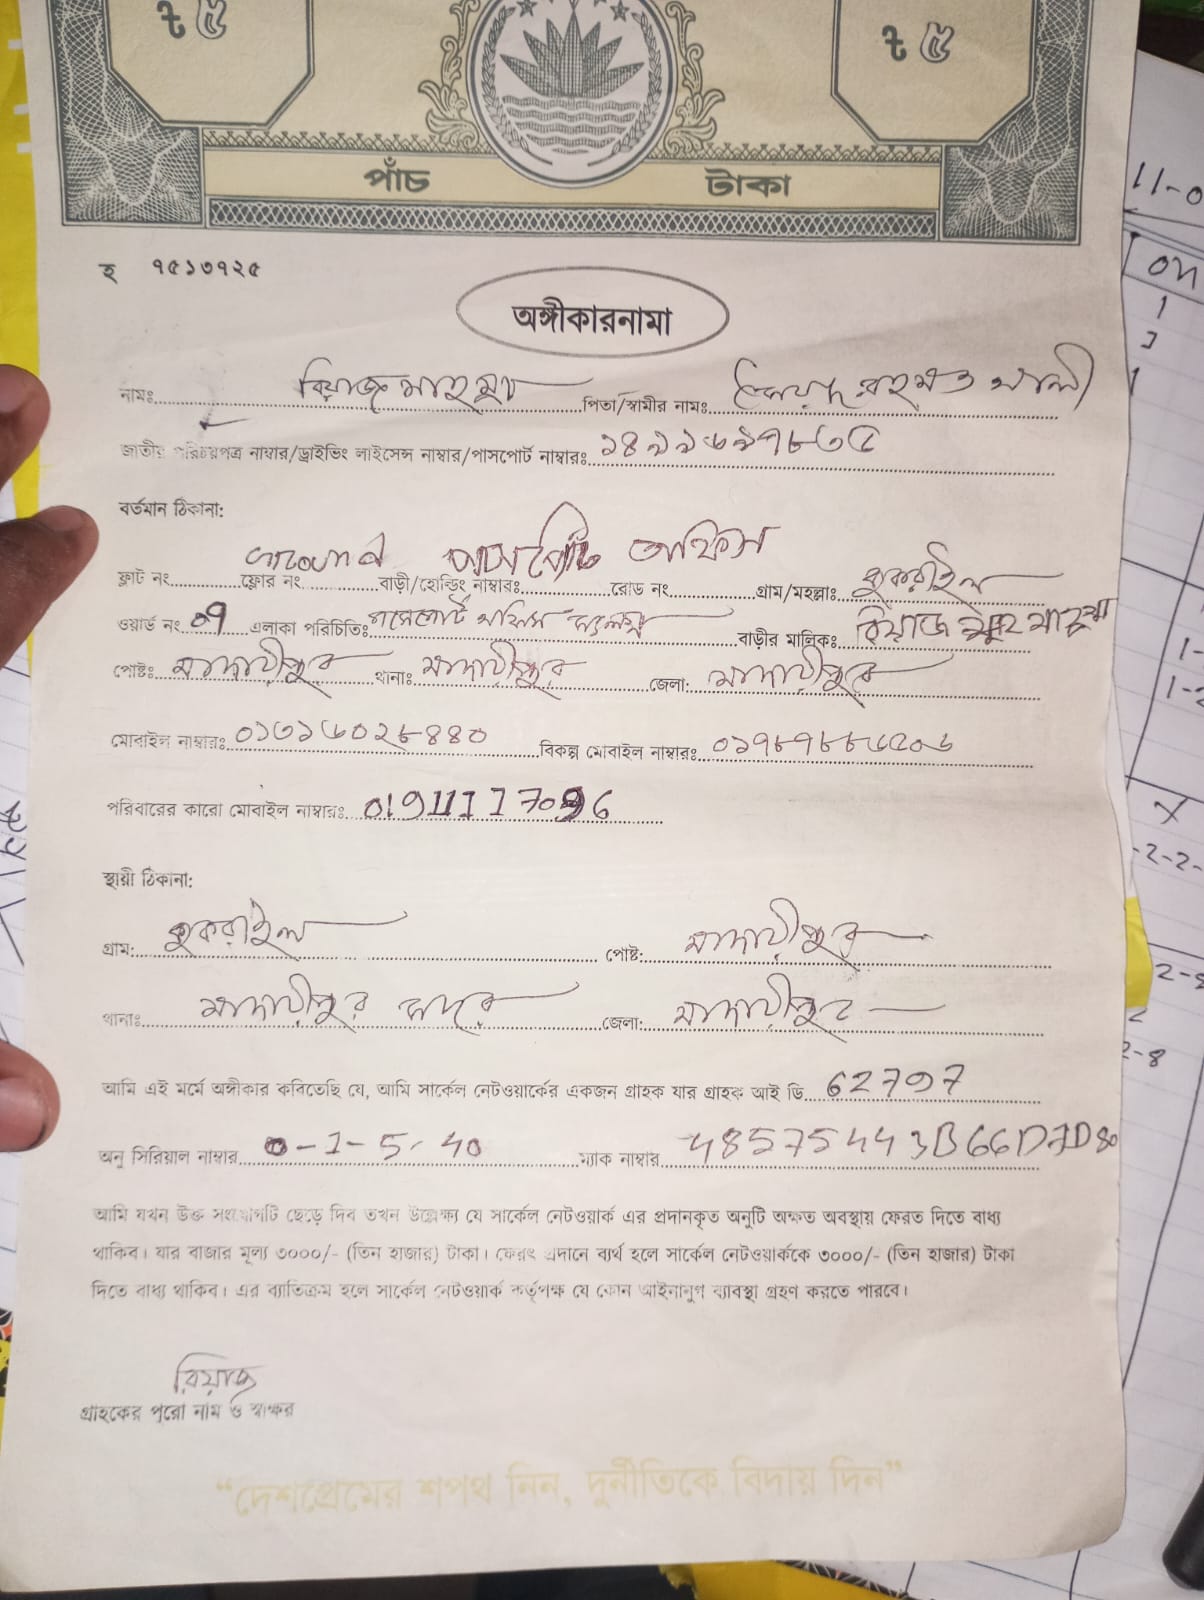 ৳ ৫ ৳ ৫
পাঁচ টাকা
হ ৭৫১৩৭২৫
অঙ্গীকারনামা
নামঃ রিয়াজ মাহমুদ পিতা/স্বামীর নামঃ সৈয়দ রহমত আলী
জাতীয় পরিচয়পত্র নাম্বার/ড্রাইভিং লাইসেন্স নাম্বার/পাসপোর্ট নাম্বারঃ
বর্তমান ঠিকানা:
পাসপোর্ট অফিস
ফ্লাট নং ফ্লোর নং বাড়ী/হোল্ডিং নাম্বারঃ রোড নং গ্রাম/মহল্লাঃ কুকরাইল
ওয়ার্ড নং ০৭ এলাকা পরিচিতিঃ পাসপোর্ট অফিস সংলগ্ন বাড়ীর মালিকঃ রিয়াজ মাহমুদ
পোষ্টঃ মাদারীপুর থানাঃ মাদারীপুর জেলা: মাদারীপুর
মোবাইল নাম্বারঃ বিকল্প মোবাইল নাম্বারঃ
পরিবারের কারো মোবাইল নাম্বারঃ
স্থায়ী ঠিকানা:
গ্রাম: কুকরাইল পোষ্ট: মাদারীপুর
থানাঃ মাদারীপুর সদর জেলা: মাদারীপুর
আমি এই মর্মে অঙ্গীকার করিতেছি যে, আমি সার্কেল নেটওয়ার্কের একজন গ্রাহক যার গ্রাহক আই ডি 62797
অনু সিরিয়াল নাম্বার 0-1-5-40 ম্যাক নাম্বার 485754433B66D7D80
আমি যখন উক্ত সংযোগটি ছেড়ে দিব তখন উল্লেক্ষ্য যে সার্কেল নেটওয়ার্ক এর প্রদানকৃত অনুটি অক্ষত অবস্থায় ফেরত দিতে বাধ্য
থাকিব। যার বাজার মূল্য ৩০০০/- (তিন হাজার) টাকা। ফেরৎ প্রদানে ব্যর্থ হলে সার্কেল নেটওয়ার্ককে ৩০০০/- (তিন হাজার) টাকা
দিতে বাধ্য থাকিব। এর ব্যাতিক্রম হলে সার্কেল নেটওয়ার্ক কর্তৃপক্ষ যে কোন আইনানুগ ব্যাবস্থা গ্রহণ করতে পারবে।
রিয়াজ
গ্রাহকের পুরো নাম ও স্বাক্ষর
“দেশপ্রেমের শপথ নিন, দুর্নীতিকে বিদায় দিন”